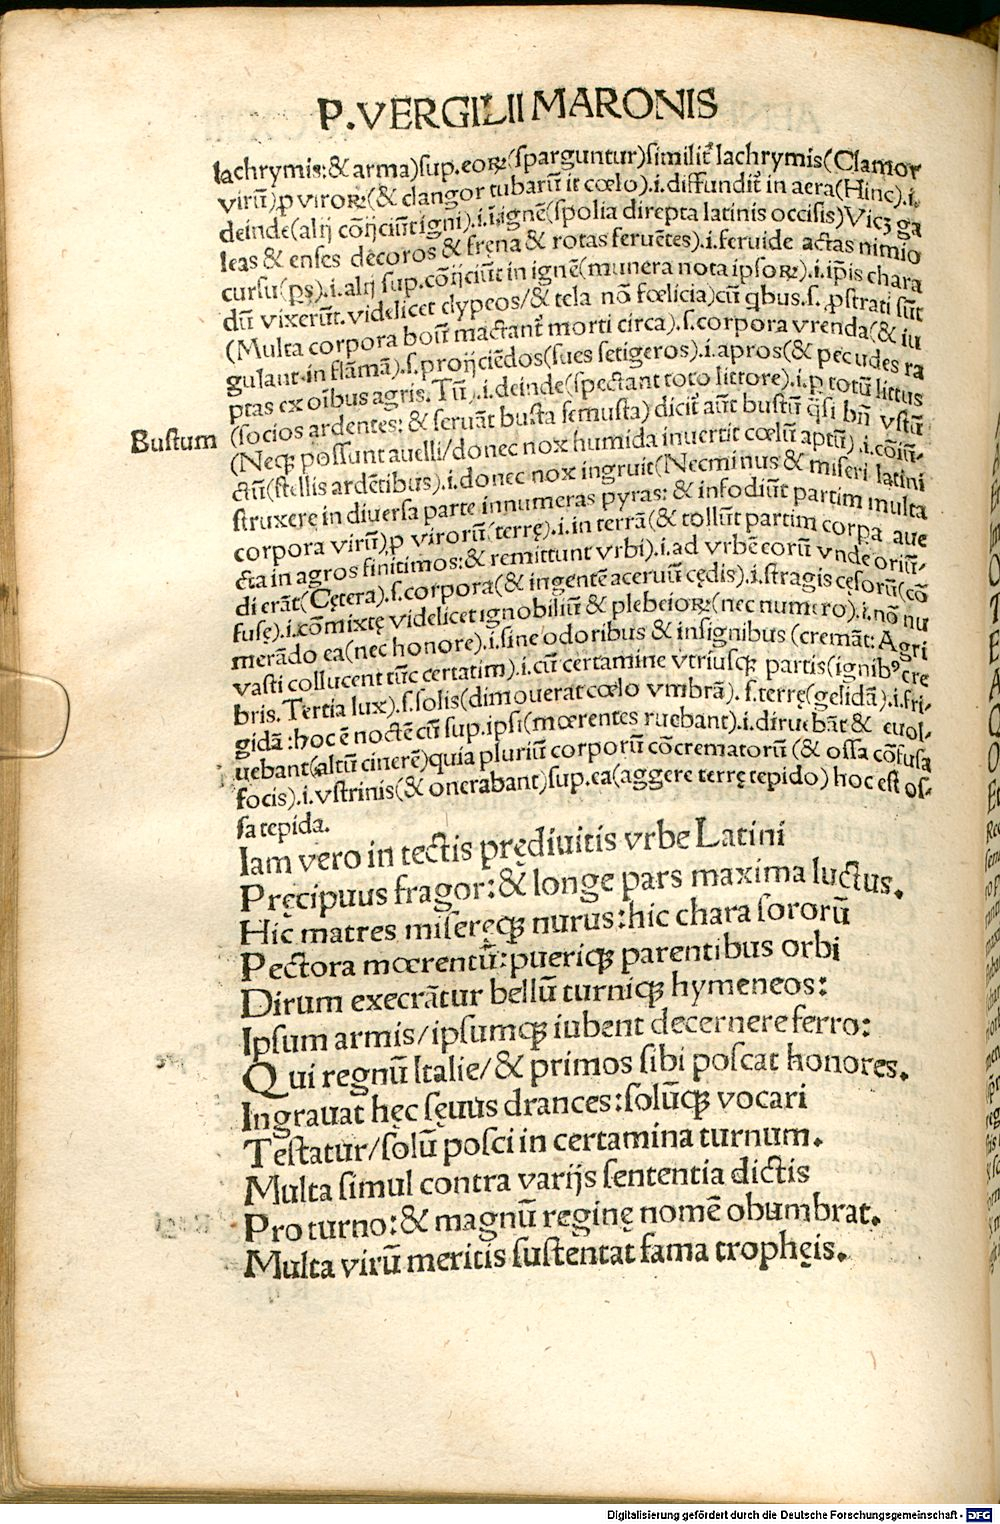 P. VERGILII MARONIS
lachrymis: & arma) sup. eoꝝ (sparguntur) similit̃ lachrymis (Clamor
virū) ꝓ viroꝝ (& clangor tubarū it cœlo) .i. diffundit̃ in aera (Hinc) .i.
deinde (alij cōijciūt igni) .i. ī ignē (spolia direpta latinis occisis) Vicꝫ ga
leas & enses decoros & fręna & rotas feruētes) .i. feruide actas nimio
cursu (ps) .i. alij sup. cōijciūt in ignē (munera nota ipsoꝝ) .i. ip̄is chara
dū vixerūt. videlicet clypeos / & tela nō fœlicia) cū q̄bus .s. ꝓstrati sūt
(Multa corpora boū mactant̃ morti circa) .s. corpora vrenda (& iu
gulant in flāmā) .s. proijciēdos (sues setigeros) .i. apros (& pecudes ra
ptas ex oībus agris. Tū) .i. deinde (spectant toto littore) .i. ꝑ totū littus
Bustum
(socios ardentes: & seruāt busta semusta) dicit̃ aūt bustū q̄si bn̄ vstū
(Neqꝫ possunt auelli / donec nox humida inuertit cœlū aptū) .i. cōiū-
ctū (stellis ardētibus) .i. donec nox ingruit (Nec minus & miseri latini
struxerę in diuersa parte innumeras pyras: & infodiūt partim multa
corpora virū) ꝓ virorū (terrę) .i. in terrā (& tollūt partim corpa aue
cta in agros finitimos: & remittunt vrbi) .i. ad vrbē eorū vnde oriū-
di erāt (Cętera) .s. corpora (& ingentē aceruū cędis) .i. stragis cęsorū (cō
fusę) .i. cōmixtę videlicet ignobiliū & plebeioꝝ (nec numero) .i. nō nu
merādo ea (nec honore) .i. sine odoribus & insignibus (cremāt: Agri
vasti collucent tūc certatim) .i. cū certamine vtriusqꝫ partis (ignibꝰ cre
bris. Tertia lux) .s. solis (dimouerat cœlo vmbrā) .s. terrę (gelidā) .i. fri-
gidā: hoc ē noctē cū sup. ipsi (mœrentes ruebant) .i. diruebāt & euol-
uebant (altū cinerē) quia pluriū corporū cōcrematorū (& ossa cōfusa
focis) .i. vstrinis (& onerabant) sup. ea (aggere terrę tepido) hoc est os-
sa tepida.
Iam vero in tectis prędiuitis vrbe Latini
Pręcipuus fragor: & longe pars maxima luctus.
Hic matres miseręqꝫ nurus: hic chara sororū
Pectora mœrentū: pueriqꝫ parentibus orbi
Dirum execrātur bellū turniqꝫ hymeneos:
Ipsum armis / ipsumqꝫ iubent decernere ferro:
Qui regnū Italie / & primos sibi poscat honores.
Ingrauat hęc sęuus drances: solūqꝫ vocari
Testatur / solū posci in certamina turnum.
Multa simul contra varijs sententia dictis
Pro turno: & magnū reginę nomē obumbrat.
Multa virū meritis sustentat fama trophęis.
Digitalisierung gefördert durch die Deutsche Forschungsgemeinschaft - DFG